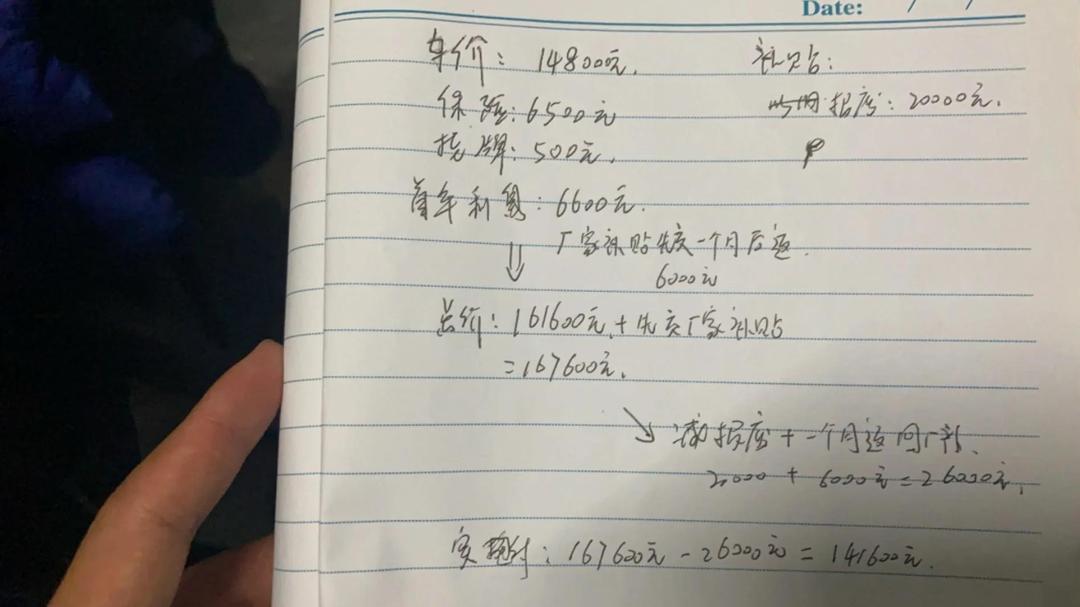 Date: / /
车价：148000元.
补贴：
报废：20000元.
保险：6500元
挂牌：500元.
首年利息：6600元.
厂家补贴先交一个月后返.
6000元
总价：161600元+先交厂家补贴
=167600元.
减报废+一个月返回厂补.
20000+6000元=26000元.
实付：167600元-26000元=141600元.